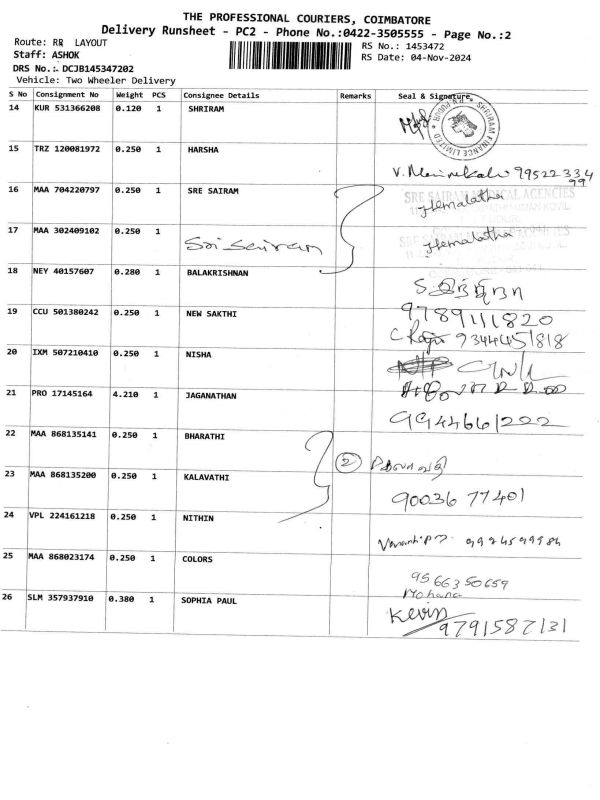 THE PROFESSIONAL COURIERS, COIMBATORE
Delivery Runsheet - PC2 - Phone No.:0422-3505555 - Page No.:2
Route: RR LAYOUT
RS No.: 1453472
Staff: ASHOK
RS Date: 04-Nov-2024
DRS No.:- DCJB145347202
Vehicle: Two Wheeler Delivery
S No Consignment No Weight PCS Consignee Details Remarks Seal & Signature
14 KUR 531366208 0.120 1 SHRIRAM
SHRIRAM FINANCE LIMITED
15 TRZ 120081972 0.250 1 HARSHA
V. 9952233499
16 MAA 704220797 0.250 1 SRE SAIRAM
SRE SAIRAM MEDICAL AGENCIES
Hemalatha
17 MAA 302409102 0.250 1 Sri Sairam
Hemalatha
18 NEY 40157607 0.280 1 BALAKRISHNAN
9789111820
19 CCU 501380242 0.250 1 NEW SAKTHI
C Raja 9344451818
20 IXM 507210410 0.250 1 NISHA
21 PRO 17145164 4.210 1 JAGANATHAN
9944661222
22 MAA 868135141 0.250 1 BHARATHI
2 கலாவதி
23 MAA 868135200 0.250 1 KALAVATHI
90036 77401
24 VPL 224161218 0.250 1 NITHIN
25 MAA 868023174 0.250 1 COLORS
9566350659
Mohana
26 SLM 357937910 0.380 1 SOPHIA PAUL
Kevin
9791587131